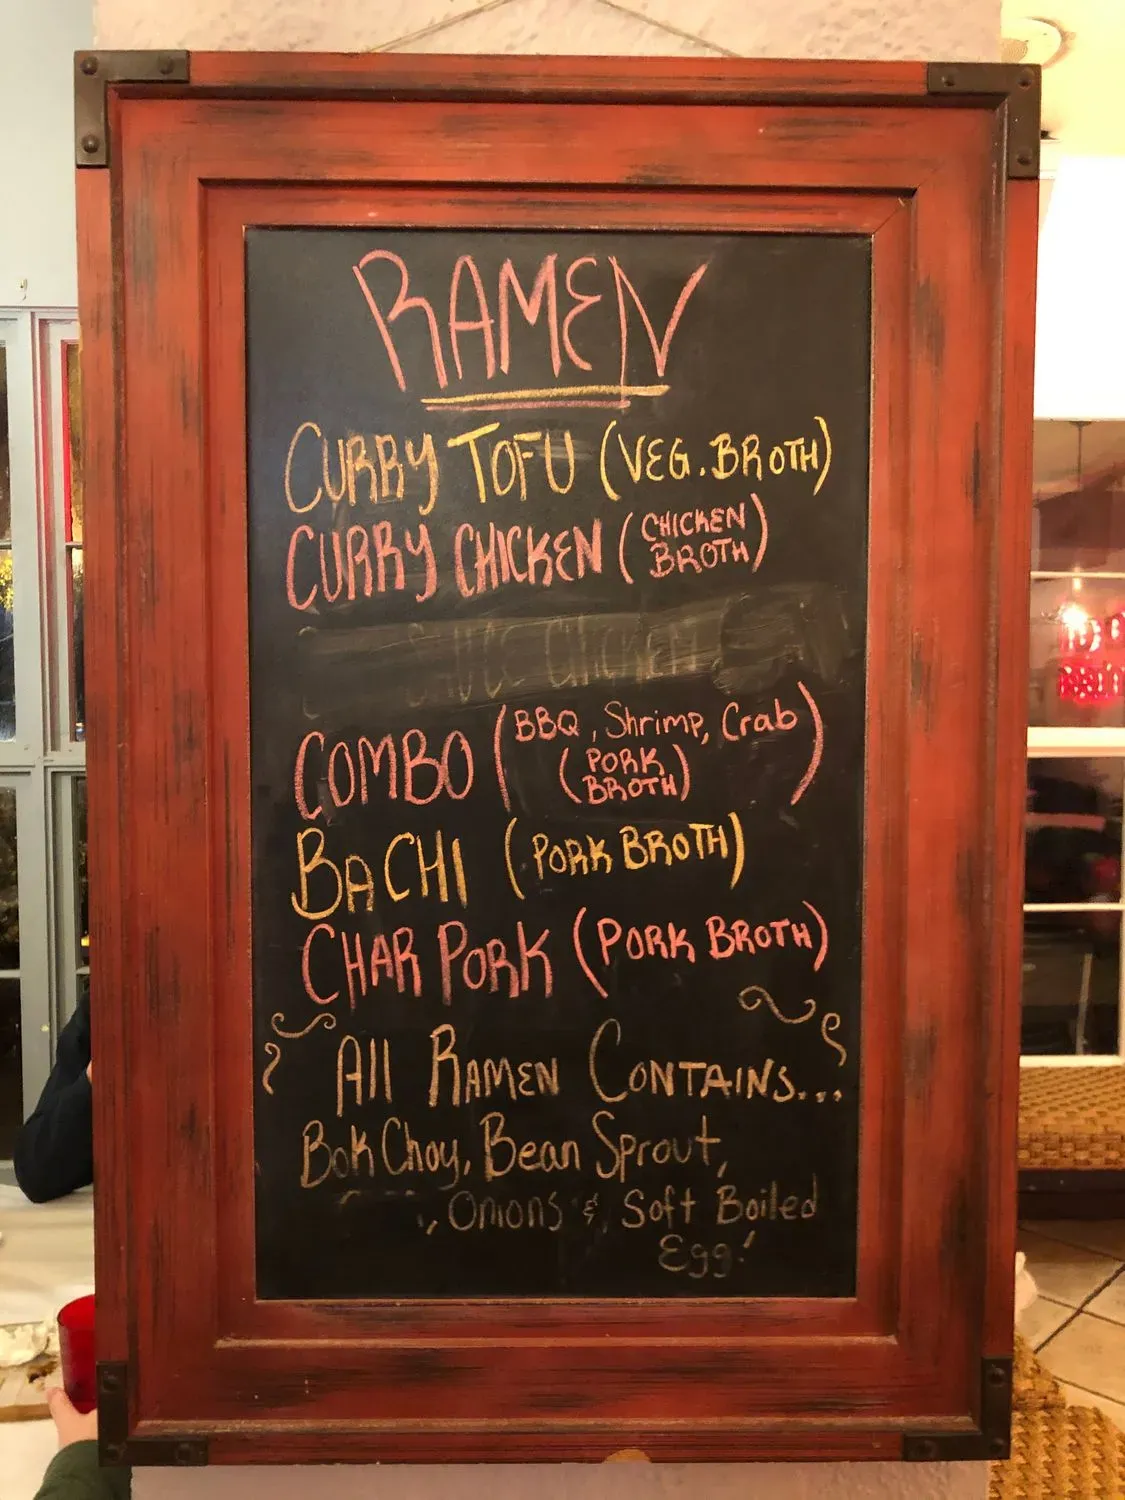 RAMEN
CURRY TOFU (VEG. BROTH)
CURRY CHICKEN (CHICKEN
BROTH)
SAUCE CHICKEN
COMBO (BBQ, Shrimp, Crab)
(PORK
BROTH)
BACHI (PORK BROTH)
CHAR PORK (PORK BROTH)
All RAMEN CONTAINS...
Bok Choy, Bean Sprout,
, Onions & Soft Boiled
Egg!